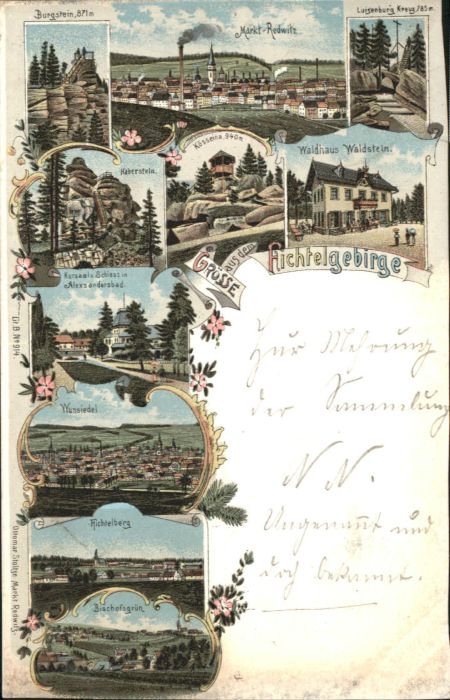 Burgstein, 871 m
Markt-Redwitz
Luisenburg Kreuz 785 m.
Haberstein.
Kösseine, 940 m
Waldhaus Waldstein.
GRÜSSE aus dem Fichtelgebirge
Kursaal u. Schloss in
Alexandersbad.
Wunsiedel
Fichtelberg
Bischofsgrün
Lit. B. No. 914
Ottomar Stolze, Markt Redwitz.
Zur Mehrung
der Sammlung
N. N.
Ungenannt und
doch bekannt.